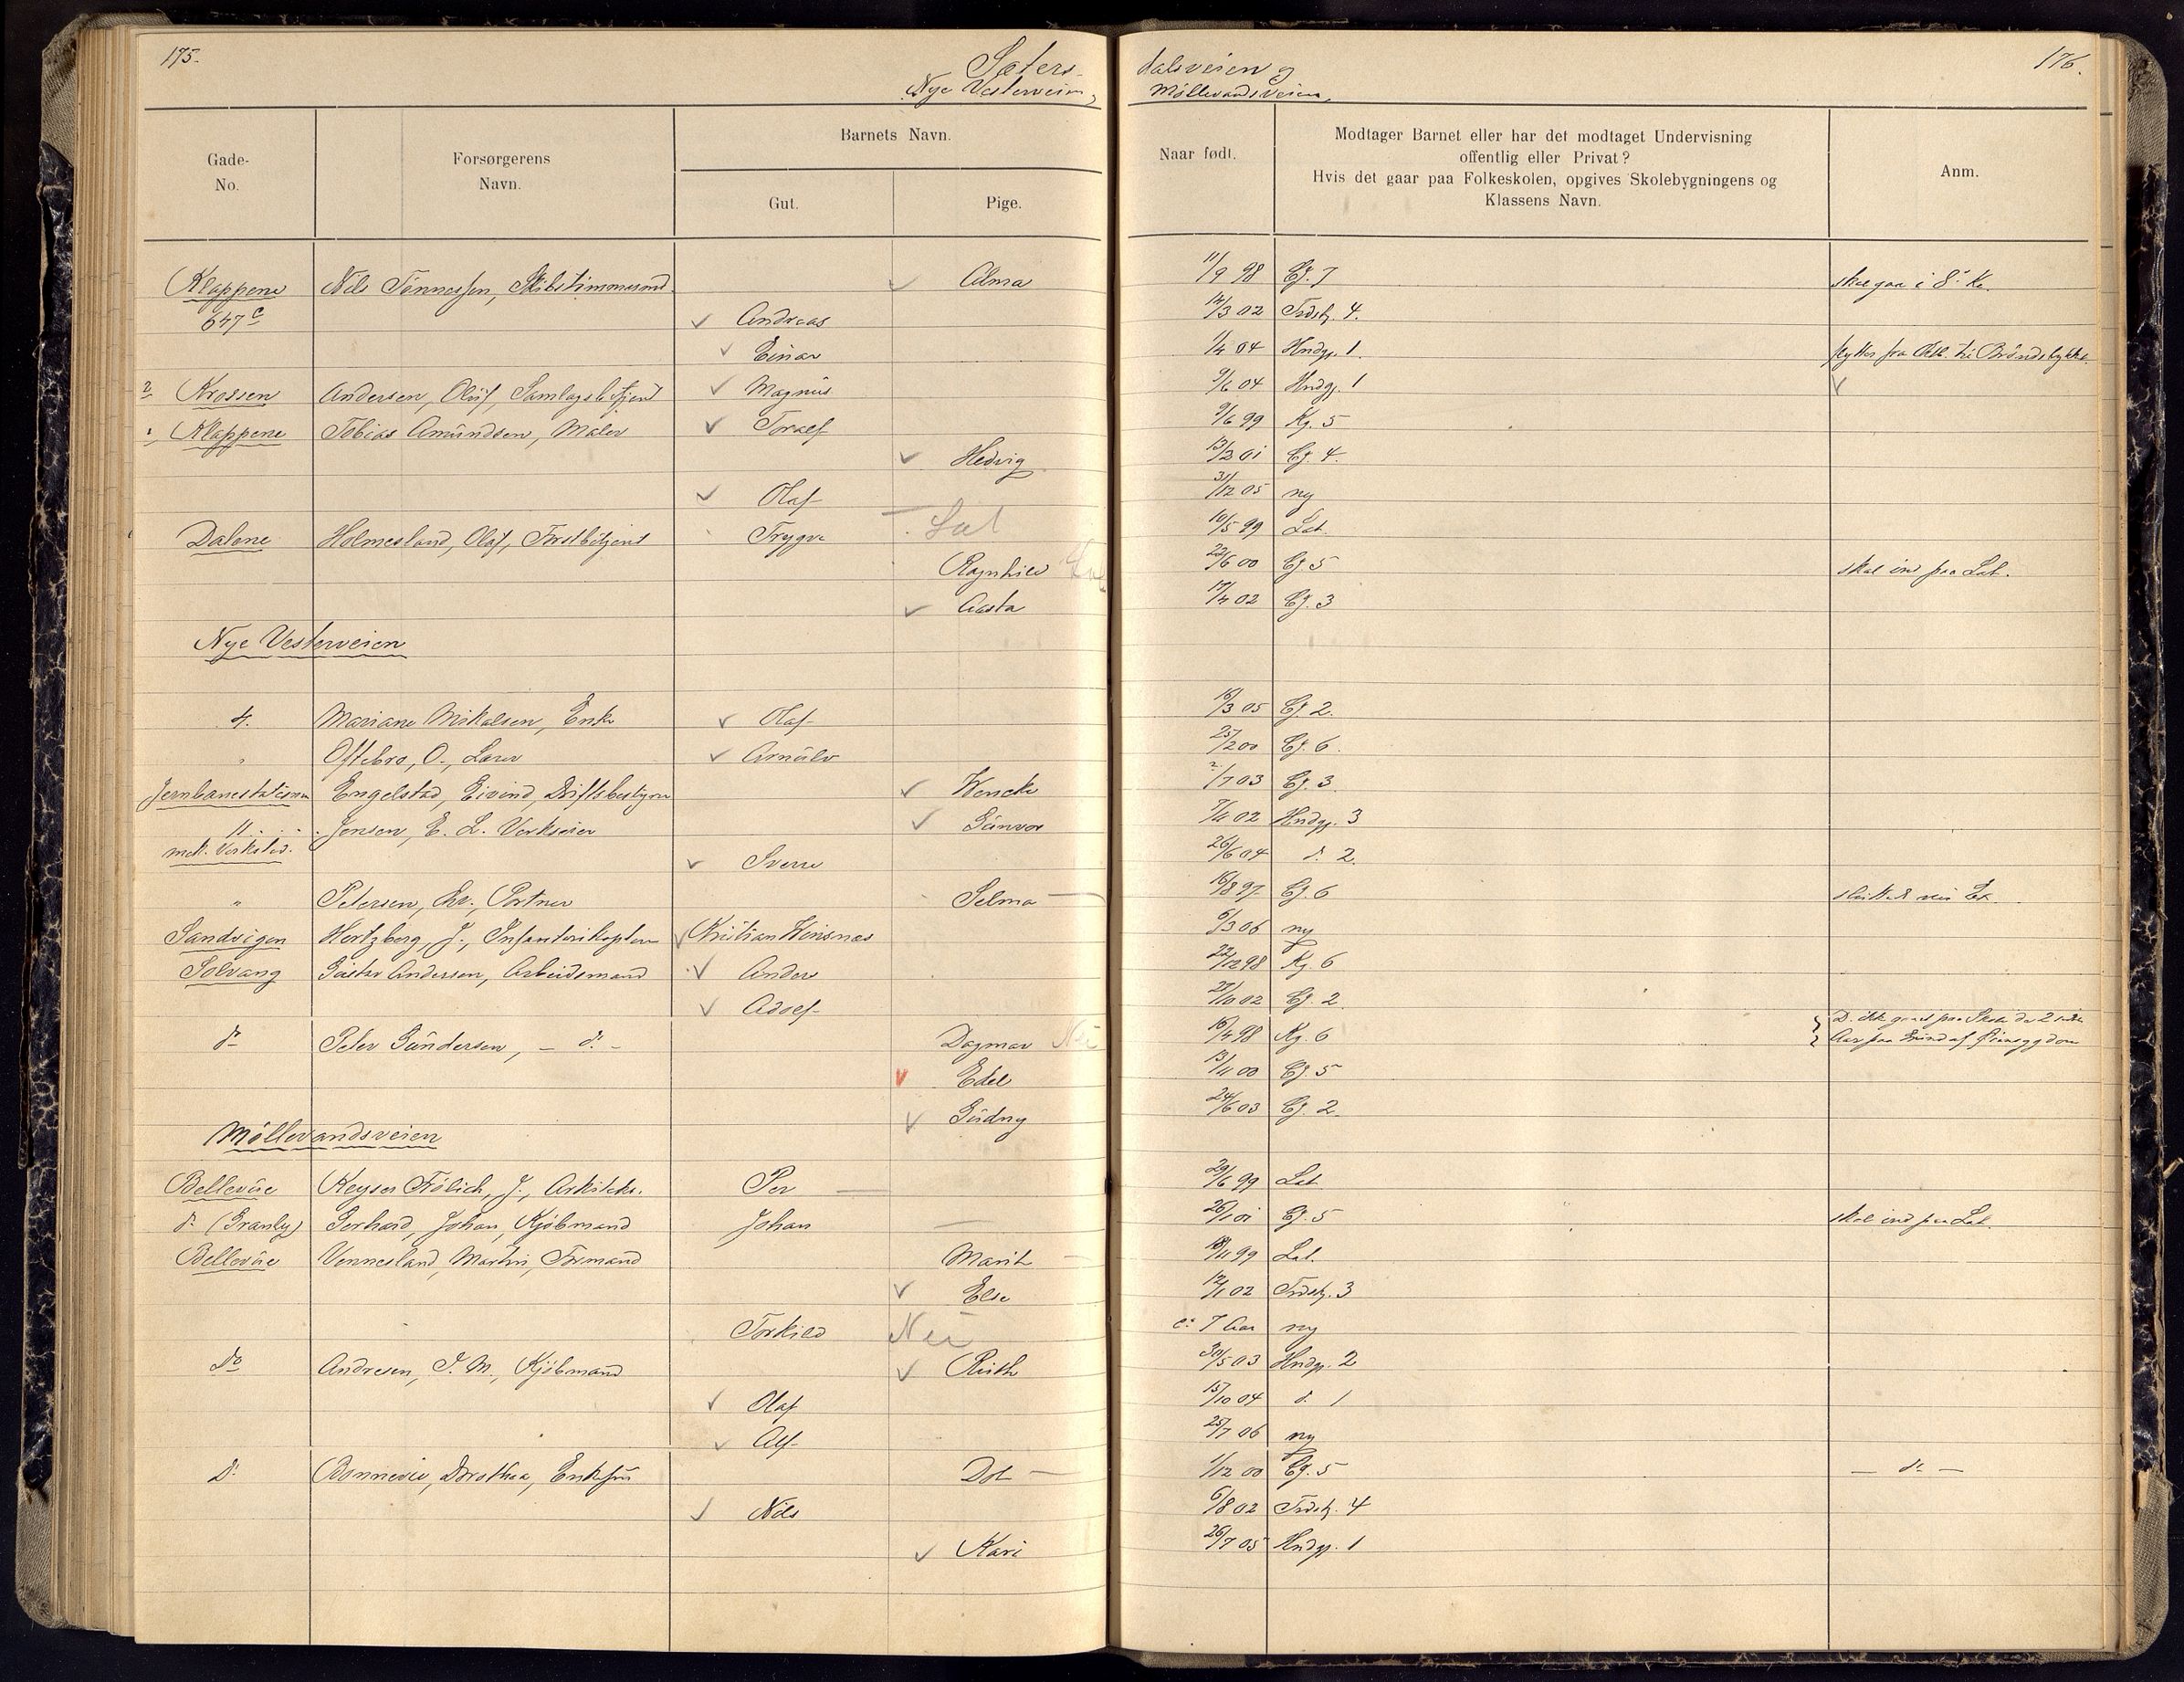 175.
Sæters-
Nye Vesterveien,
dalsveien og
Möllevandsveien,
176.
Gade-
No.
Forsørgerens
Navn.
Barnets Navn.
Gut.
Pige.
Naar født.
Modtager Barnet eller har det modtaget Undervisning
offentlig eller Privat?
Hvis det gaar paa Folkeskolen, opgives Skolebygningens og
Klassens Navn.
Anm.
Klappene Nils Tønnessen, Skibstimmermd. Alma 11/9 98 Cf. 7 skal gaa i 8. Kl.
647 c Andreas 14/3 02 Trdstj. 4.
Einar 1/4 04 Hndgp. 1. flytter fra til
2 Krossen Andersen, Oluf, Samlagsbetjent Magnus 9/6 04 Hndgp. 1
Klappene Tobias Amundsen, Maler Toralf 9/6 99 Kg. 5
Hedvig 13/2 01 Cf. 4.
Olaf 31/12 05 ny
Dalene Holmesland, Olaf, Forstbetjent Trygve Lat 10/5 99 Lat.
Ragnhild Lat 22/6 00 Cf. 5 skal ind paa Lat.
Aasta 17/4 02 Cf. 3
Nye Vesterveien
4. Mariane Mikalsen, Enke Olaf 16/3 05 Cf. 2.
" Oftebro, O., Lærer Arnulv 25/2 00 Cf. 6.
Jernbanestationen Engelstad, Eivind, Driftsbestyrer Wencke 2/7 03 Cf. 3.
11 Jensen, E. L. Verkseier Gunvor 7/11 02 Hndgp. 3
mek. Verksted. Sverre 26/6 04 d. 2.
" Petersen, Chr., Portner Selma 16/8 97 Cf. 6 sluttet ved Ex.
Sandvigen Hertzberg, J., Infanterikaptein Kristian 6/3 06 ny
Solvang Gustav Andersen, Arbeidsmand Anders 22/12 98 Kg. 6
Adolf 28/10 02 Cf. 2
do Peter Gundersen, - do - Dagmar Nei 16/4 98 Kg. 6 D. ikke gaaet paa Skole de 2 sidste
Aar paa Grund af
Edel 13/11 00 Cf. 5
Gudny 24/6 03 Cf. 2.
Möllevandsveien
Bellevue Keyser Frölich, J., Arkitekt. Per 29/6 99 Lat.
do (Granly) Gerhard, Johan, Kjöbmand Johan 26/1 01 Cf. 5 skal ind paa Lat.
Bellevue Vennesland, Martin, Formand Marit 18/11 99 Lat.
Else 12/1 02 Trdstj. 3
Torkild Nei ca 7 Aar ny
do Andresen, J. M., Kjöbmand Ruth 30/5 03 Hndgp. 2
Olaf 15/10 04 d. 1
Alf 25/7 06 ny
do Bonnevie, Dorothea, Enkefru Dot 1/12 00 Cf. 5 - do -
Nils 6/8 02 Trdstj. 4
Kari 26/7 05 Hndgp. 1